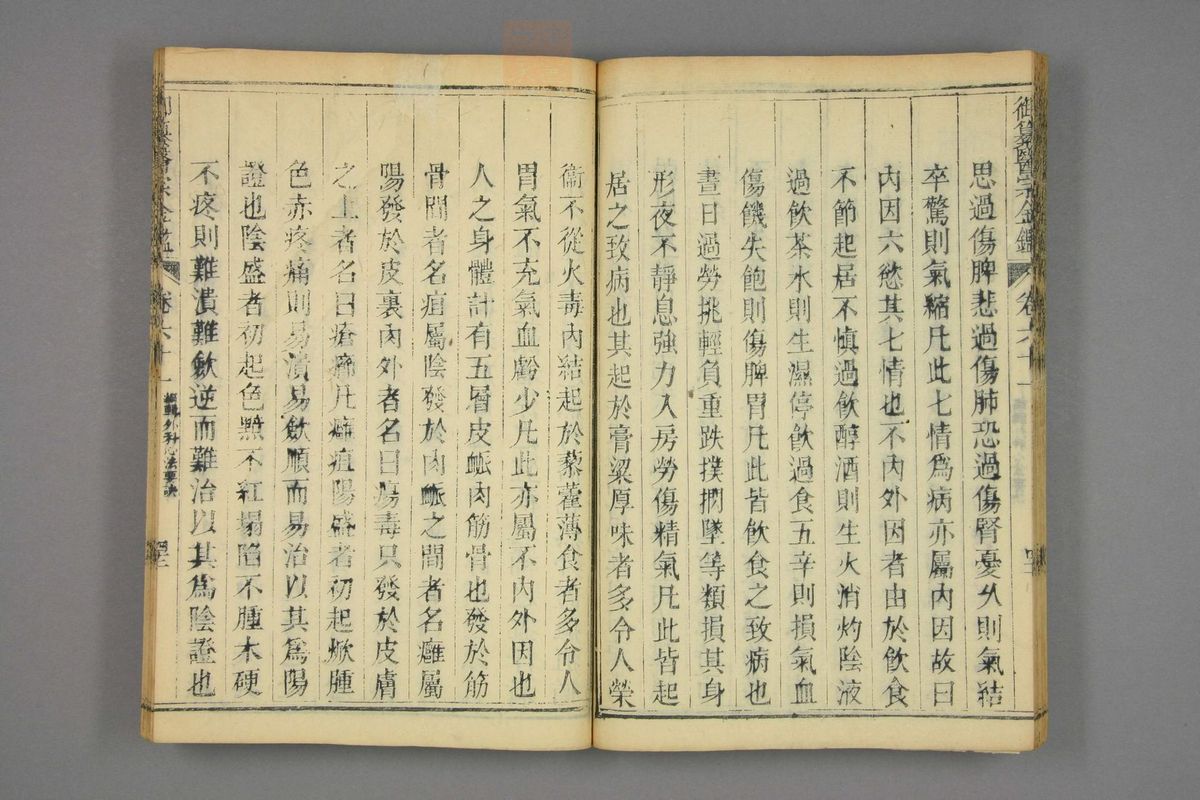 御纂醫宗金鑑 卷六十一
思過傷脾悲過傷肺恐過傷腎憂久則氣結
卒驚則氣縮凡此七情爲病亦屬內因故曰
內因六慾共七情也不內外因者由於飲食
不節起居不慎過飲醇酒則生火消灼陰液
過飲茶水則生濕停飲過食五辛則損氣血
傷饑失飽則傷脾胃凡此皆飲食之致病也
晝日過勞挑輕負重跌撲閃墜等類損其身
形夜不靜息強力入房勞傷精氣凡此皆起
居之致病也其起於膏粱厚味者多令人榮
衞不從火毒內結起於藜藿薄食者多令人
胃氣不充氣血虧少凡此亦屬不內外因也
人之身體計有五層皮脈肉筋骨也發於筋
骨間者名疽屬陰發於肉脈之間者名癰屬
陽發於皮裏肉外者名曰瘍毒只發於皮膚
之上者名曰瘡癤凡癰疽陽盛者初起焮腫
色赤疼痛則易潰易斂順而易治以其爲陽
證也陰盛者初起色黯不紅塌陷不腫木硬
不疼則難潰難斂逆而難治以其爲陰證也
御纂醫宗金鑑 卷六十一 編輯外科心法要訣